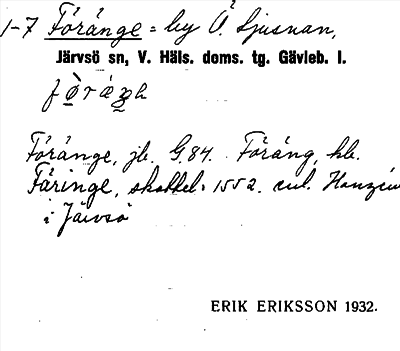 1-7 Föränge = by Ö. Ljusnan,
Järvsö sn, V. Häls. doms. tg. Gävleb. l.
Föränge, jb. G. 84. Föräng, kb.
Färinge, skattel. 1552. enl. Hanzén
i Järvsö
ERIK ERIKSSON 1932.